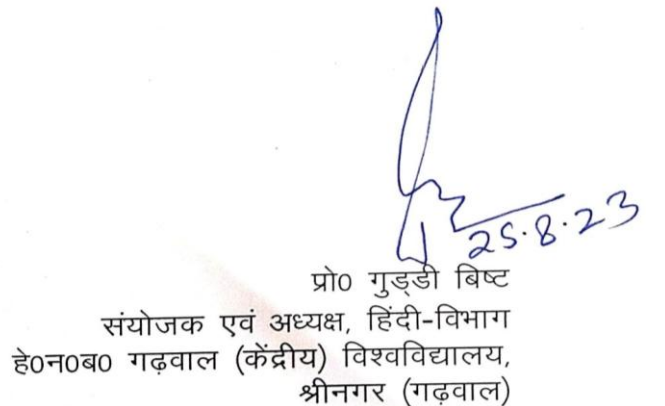 25.8.23
प्रो0 गुड्डी बिष्ट
संयोजक एवं अध्यक्ष, हिंदी-विभाग
हे0न0ब0 गढ़वाल (केंद्रीय) विश्वविद्यालय,
श्रीनगर (गढ़वाल)